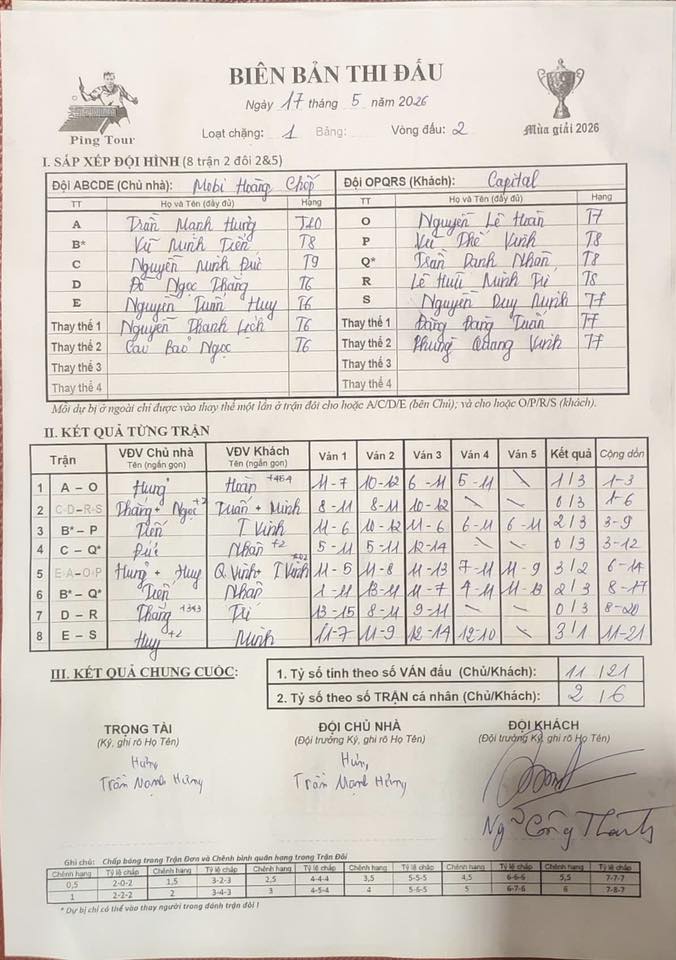 BIÊN BẢN THI ĐẤU
Ngày 17 tháng 5 năm 2026
Ping Tour
Loạt chặng: 1 Bảng: Vòng đấu: 2
Mùa giải 2026
I. SẮP XẾP ĐỘI HÌNH (8 trận 2 đôi 2&5)
Đội ABCDE (Chủ nhà): Mobi Hoàng Chóp Đội OPQRS (Khách): Capital
TT Họ và Tên (đầy đủ) Hạng TT Họ và Tên (đầy đủ) Hạng
A Trần Mạnh Hưng T10 O Nguyễn Lê Hoàn T7
B* Vũ Minh Tiến T8 P Vũ Thế Vinh T8
C Nguyễn Minh Đức T9 Q* Trần Danh Nhân T8
D Đỗ Ngọc Thắng T6 R Lê Hữu Minh Tú T8
E Nguyễn Tuấn Huy T6 S Nguyễn Duy Minh T7
Thay thế 1 Nguyễn Thanh Lịch T6 Thay thế 1 Đặng Đăng Tuấn T7
Thay thế 2 Cao Bảo Ngọc T6 Thay thế 2 Phùng Quang Vinh T7
Thay thế 3 Thay thế 3
Thay thế 4 Thay thế 4
Mỗi dự bị ở ngoài chỉ được vào thay thế một lần ở trận đôi cho hoặc A/C/D/E (bên Chủ); và cho hoặc O/P/R/S (khách).
II. KẾT QUẢ TỪNG TRẬN
Trận VĐV Chủ nhà Tên (ngắn gọn) VĐV Khách Tên (ngắn gọn) Ván 1 Ván 2 Ván 3 Ván 4 Ván 5 Kết quả Cộng dồn
1 A – O Hưng Hoàn +464 11-7 10-12 6-11 5-11 \ 1/3 1-3
2 C-D–R-S Thắng + Ngọc +2 Tuấn + Minh 8-11 8-11 10-12 \ \ 0/3 1-6
3 B* – P Tiến T Vinh 11-6 10-12 11-6 6-11 6-11 2/3 3-9
4 C – Q* Đức Nhân +2 5-11 5-11 12-14 \ \ 0/3 3-12
5 E-A–O-P Hưng + Huy Q Vinh + T Vinh +202 11-5 11-8 11-13 7-11 11-9 3/2 6-14
6 B* – Q* Tiến Nhân 1-11 13-11 11-7 4-11 11-13 2/3 8-17
7 D – R Thắng +343 Tú 13-15 8-11 9-11 \ \ 0/3 8-20
8 E – S Huy +2 Minh 11-7 11-9 12-14 12-10 \ 3/1 11-21
III. KẾT QUẢ CHUNG CUỘC:
1. Tỷ số tính theo số VÁN đấu (Chủ/Khách): 11 / 21
2. Tỷ số theo số TRẬN cá nhân (Chủ/Khách): 2 / 6
TRỌNG TÀI ĐỘI CHỦ NHÀ ĐỘI KHÁCH
(Ký, ghi rõ Họ Tên) (Đội trưởng Ký, ghi rõ Họ Tên) (Đội trưởng Ký, ghi rõ Họ Tên)
Hưng Hưng
Trần Mạnh Hưng Trần Mạnh Hưng
Ngô Công Thành
Ghi chú: Chấp bóng trong Trận Đơn và Chênh bình quân hạng trong Trận Đôi
Chênh hạng Tỷ lệ chấp Chênh hạng Tỷ lệ chấp Chênh hạng Tỷ lệ chấp Chênh hạng Tỷ lệ chấp Chênh hạng Tỷ lệ chấp Chênh hạng Tỷ lệ chấp
0,5 2-0-2 1,5 3-2-3 2,5 4-4-4 3,5 5-5-5 4,5 6-6-6 5,5 7-7-7
1 2-2-2 2 3-4-3 3 4-5-4 4 5-6-5 5 6-7-6 6 7-8-7
* Dự bị chỉ có thể vào thay người trong đánh trận đôi !